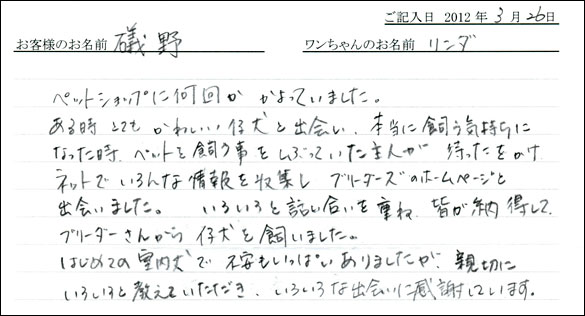 ご記入日 2012年 3月 26日
お客様のお名前 礒野 ワンちゃんのお名前 リンダ
ペットショップに何回か かよっていました。
ある時 とても かわいい 仔犬と出会い、本当に飼う気持ちに
なった時、ペットを飼う事をしぶっていた主人が 待ったをかけ
ネットで いろんな情報を収集し ブリーダーズのホームページと
出会いました。 いろいろと話し合いを重ね 皆が納得して、
ブリーダーさんから 仔犬を飼いました。
はじめての室内犬で 不安もいっぱいありましたが、親切に
いろいろと教えていただき、いろいろな出会いに感謝しています。